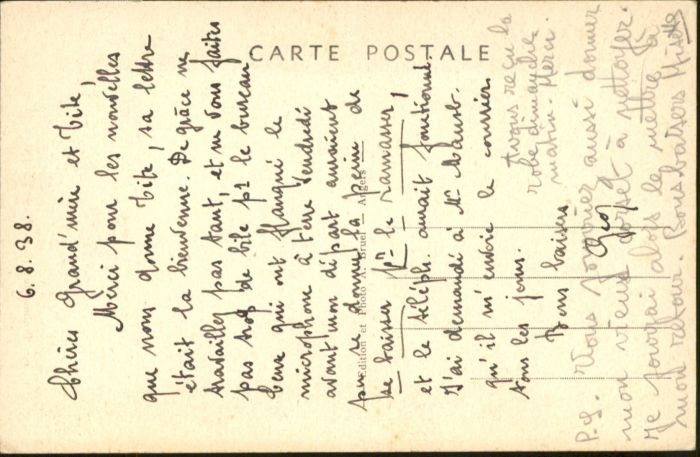 CARTE POSTALE
6.8.38.
Chères Grand'mère et Tité,
Merci pour les nouvelles
que nous donne Tité, sa lettre
était la bienvenue. De grâce ne
travaillez pas tant, et ne vous faites
pas trop de bile pr le bureau
ceux qui ont flanqué le
microphone à terre vendredi
avant mon départ auraient
pu se donner la peine de
se baisser pr le ramasser,
et le téléph. aurait fonctionné.
J'ai demandé à Mr
qu'il m'envoie le courrier
tous les jours.
Bons baisers
Edition et Photo A. Bruel — Angers
Avons reçu la
robe dimanche
matin. Merci.
P.S. Vous pouvez aussi donner
mon vieux corset à nettoyer.
Je pourrai alors le mettre à
mon retour. Bons baisers